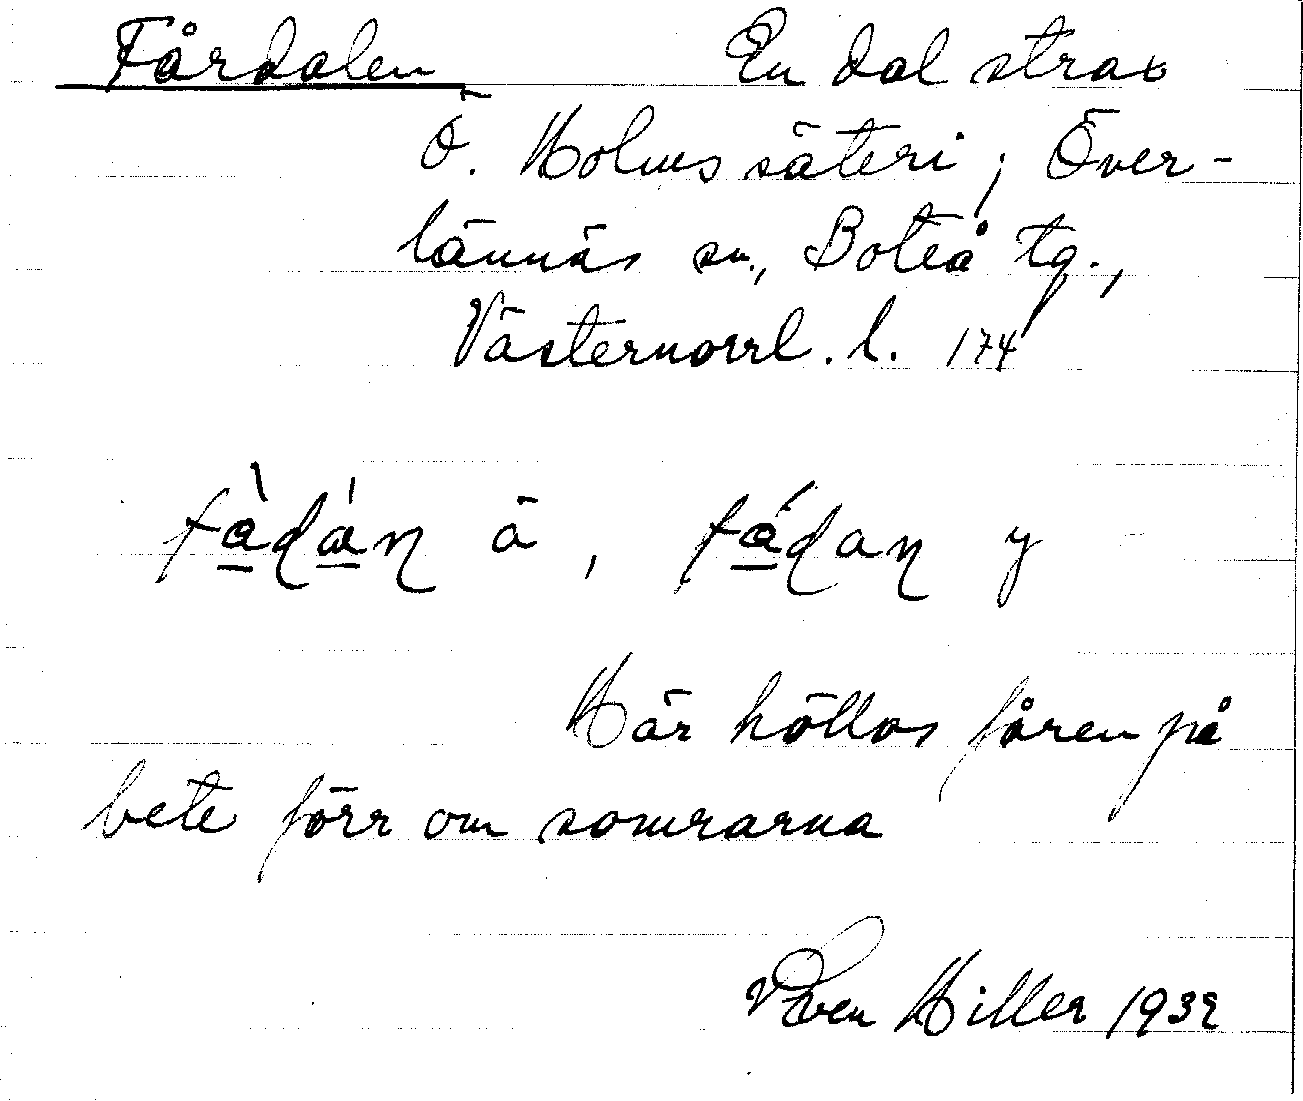 Fårdalen En dal strax
Ö. Holms säteri; Över-
lännäs sn., Boteå tg.,
Västernorrl. l. 174
fàdàn ä, fádan y
Här höllos fåren på
bete förr om somrarna
Sven Hiller 1932